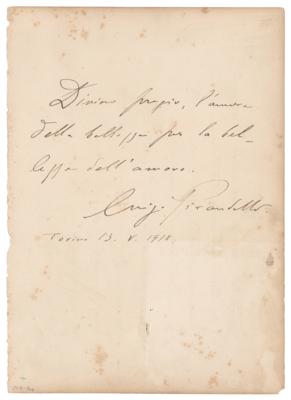 Divino pregio, l'amore
della bellezza per la bel-
lezza dell'amore.
Luigi Pirandello.
Torino 13. V. 1918.